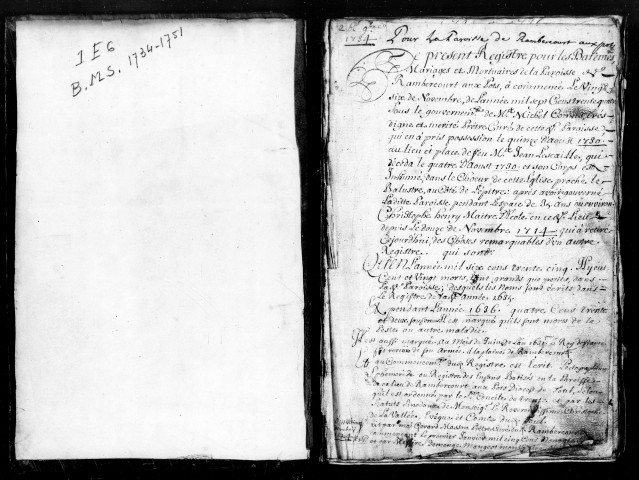 1 E 6
B.M.S. 1734-1751
1734 Pour La Paroisse de Rambercourt aux pots
Le present Registre pour les Batêmes
Mariages et Mortuaires de la Paroisse de
Rambercourt aux Pots, a commencé Le Vingt
six de Novembre, de L'année mil sept Cens trente quatre
sous le gouvernemt. de Mre. Michel
digne et merité Prêtre Curé de cette Paroisse
qui en a pris possession le quinze d'Aoust 1730.
au lieu et place de feu Mre. Jean Lescaille, qui
deceda le quatre d'Aoust 1730 et son Corps est
Inhumé dans le Choeur de cette Eglise, proche le
Balustre, au Côté de L'epitre; après avoir gouverné
Laditte Paroisse pendant L'espace de 34 ans ou environ
Christophe henry Maitre d'Ecole en ce Lieu
depuis Le douze de Novembre 1714 qui a retiré
Cejourdhui, des Choses remarquables d'un autre
Registre. qui sont
QU'EN L'année mil six cens trente cinq. Il y eut
Cent et Vingt morts, tant grands que petits, dans
La Paroisse; desquels les noms sont écrits dans
Le Registre de lad. année 1635.
Et pendant L'année 1636 quatre Cens trente
et deux personnes est marqué qu'ils sont morts de la
Peste ou autre maladie.
Il est aussi marqué, au Mois de Juin de L'an le Roy
revenu de son Armée, de Rambercourt
Et au Commencement dud. Registre est Ecrit
ou Registre des Enfans Batisés en la Paroisse
de Rambercourt aux Pots Diocese de Toul
qu'il est ordonné par le St. Concile de Trente, et par les
Statuts Synodaux de Monseigr. le Christophe
de La Vallée, Evêque et Comte de Toul.
par moi Gerard Prêtre de Rambercourt
commencant le premier Janvier mil cinq Cens
et par Messire Mangeot